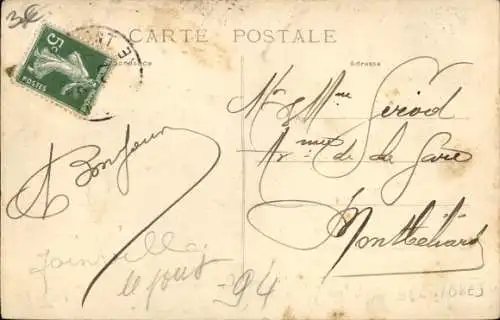 3€
CARTE POSTALE
Correspondance
Adresse
5c
POSTES
Mr & Mme Seriod
Avnue de la Gare
Montbéliard
Bonjour
Joinville
le pont
94